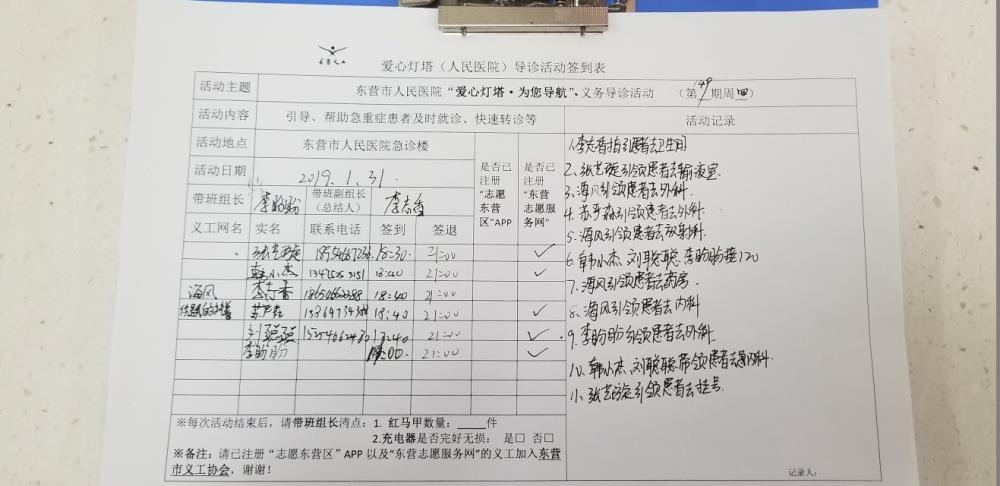 东营义工
爱心灯塔（人民医院）导诊活动签到表
活动主题 东营市人民医院“爱心灯塔·为您导航”、义务导诊活动 （第149期周四）
活动内容 引导、帮助急重症患者及时就诊、快速转诊等 活动记录
活动地点 东营市人民医院急诊楼 是否已注册“志愿东营区”APP 是否已注册“东营志愿服务网”
活动日期 2019.1.31.
带班组长 李盼盼 带班副组长（总结人） 李志香
义工网名 实名 联系电话 签到 签退
张艺璇 15:30. 21:00 ✓
韩小杰 18:40 21:00 ✓
海风 李志香 18:40 21:00
18:40 21:00 ✓
刘聪聪 18:40 21:00 ✓
李盼盼 18:00. 21:00 ✓
1.李志香指引患者去卫生间
2、张艺璇引领患者去输液室.
3、海风引领患者去外科.
4.苏子森引领患者去外科.
5、海风引领患者去放射科.
6、韩小杰、刘聪聪、李盼盼接120
7、海风引领患者去药房.
8、海风引领患者去内科
9、李盼盼引领患者去外科.
10、韩小杰、刘聪聪带领患者去内科.
11、张艺璇引领患者去挂号.
※每次活动结束后，请带班组长清点：1. 红马甲数量：____件
2.充电器是否完好无损： 是□ 否□
※备注：请已注册“志愿东营区”APP 以及“东营志愿服务网”的义工加入东营
市义工协会，谢谢！
记录人：